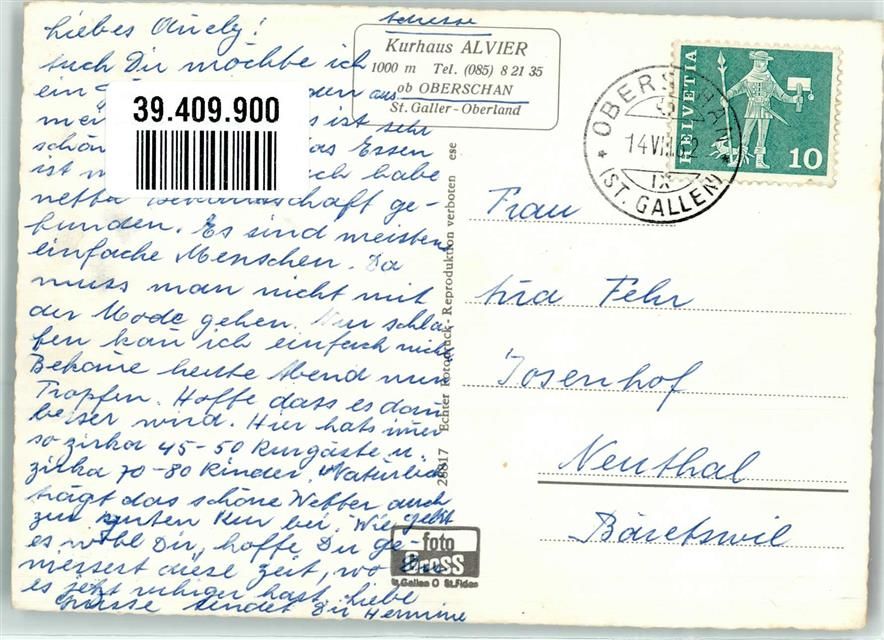 Liebes Ruedy!
Auch Dir möchte ich
ein aus
ist sehr
schön das Essen
ist habe
nette schaft ge-
bunden. Es sind meistens
einfache Menschen. Da
muss man nicht mit
der Mode gehen. Nur schla-
fen kan ich einfach nicht
Bekome heute Abend nun
Tropfen. Hoffe dass es dan
beser wird. Hier hats imer
so zirka 45-50 Kurgäste u.
zirka 70-80 Kinder. Natürlich
trägt das schöne Wetter auch
zur guten Kur bei. Wie geht
es wohl Dir, hoffe Du ge-
niessest diese Zeit, wo Du
es jetzt ruhiger hast. Liebe
Grüsse sendet Dir Hermine
39.409.900
Adresse
Kurhaus ALVIER
1000 m Tel. (085) 8 21 35
ob OBERSCHAN
St. Galler-Oberland
28817 Echter Rotodruck - Reproduktion verboten ese
foto
GROSS
St.Gallen O St.Fiden
HELVETIA
10
OBERSCHAN
14.VII.62
IX
(ST. GALLEN)
Frau
Fehr
Josenhof
Neuthal
Bäretswil